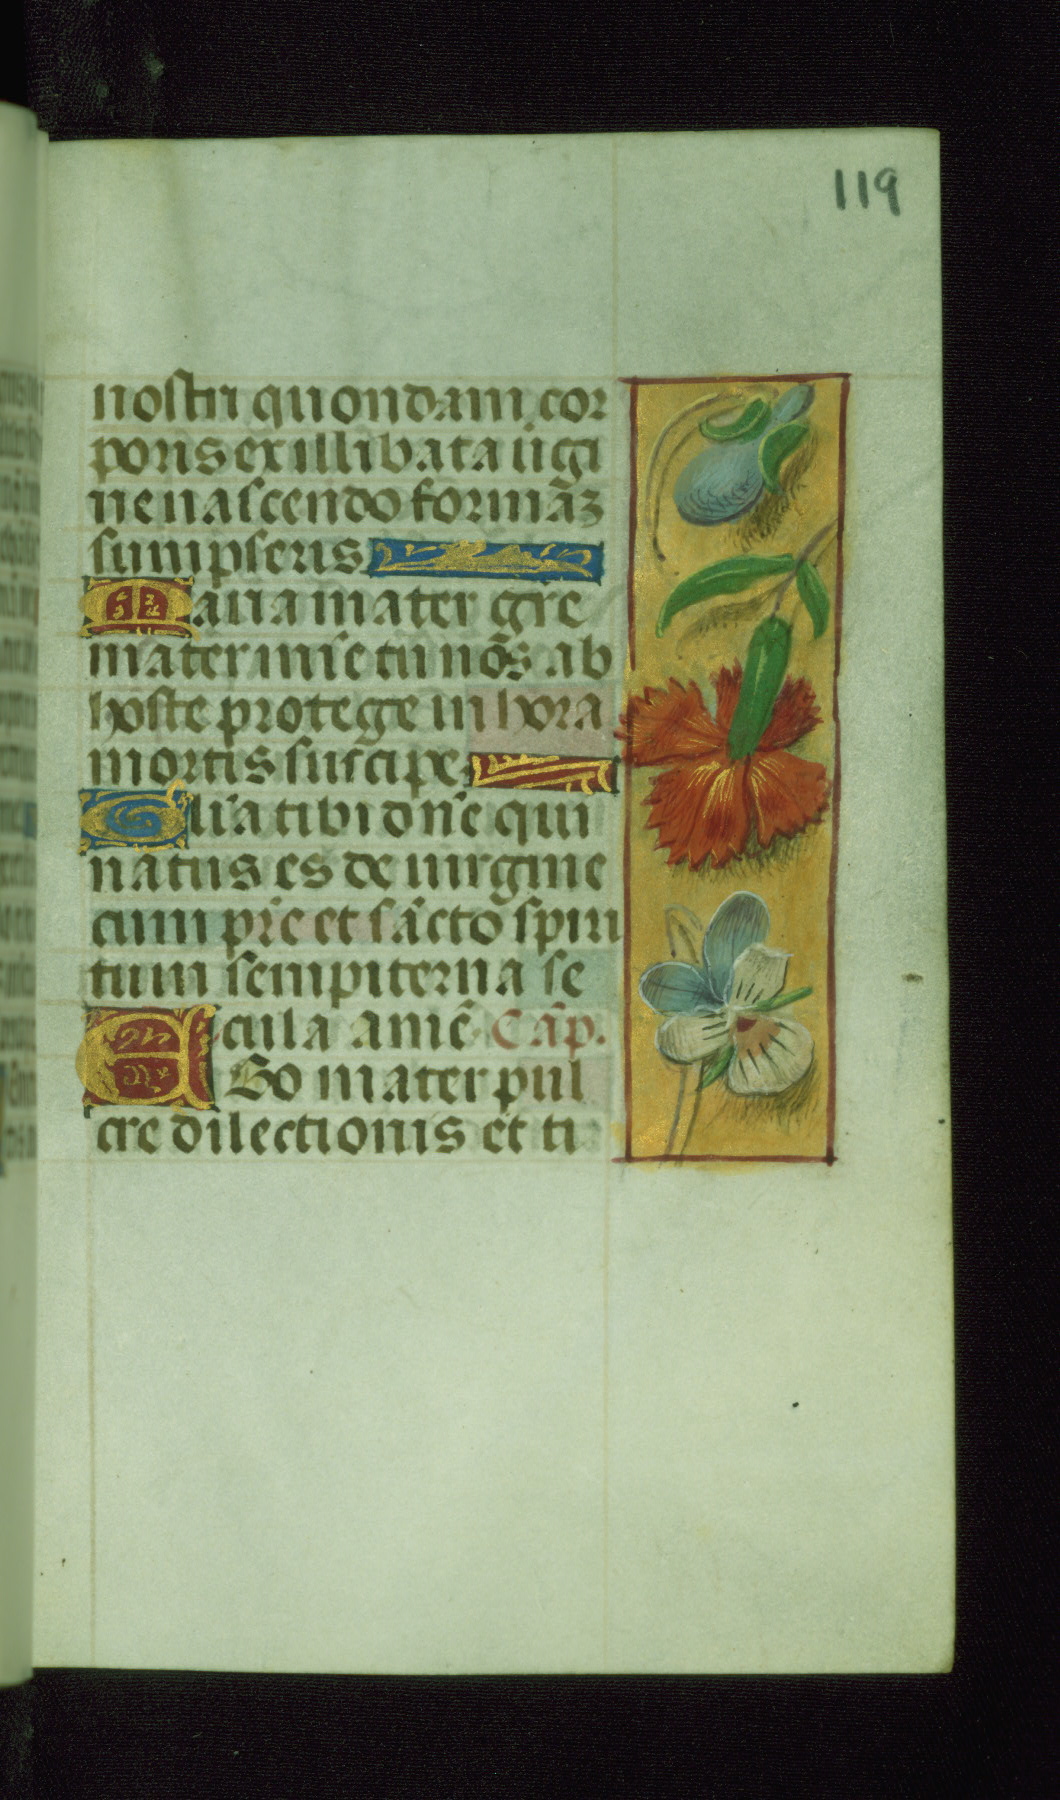 119
nostri quondam cor
poris ex illibata ṽgi
ne nascendo formãʒ
sumpseris
Maria mater grẽ
mater mĩe tu nõs ab
hoste protege in hora
mortis suscipe
Glĩa tibi dñe qui
natus es de uirgine
cum pr̃e et sãcto spiri
tum sempiterna se
cula amẽ Cãp.
Ego mater pul
cre dilectionis et ti